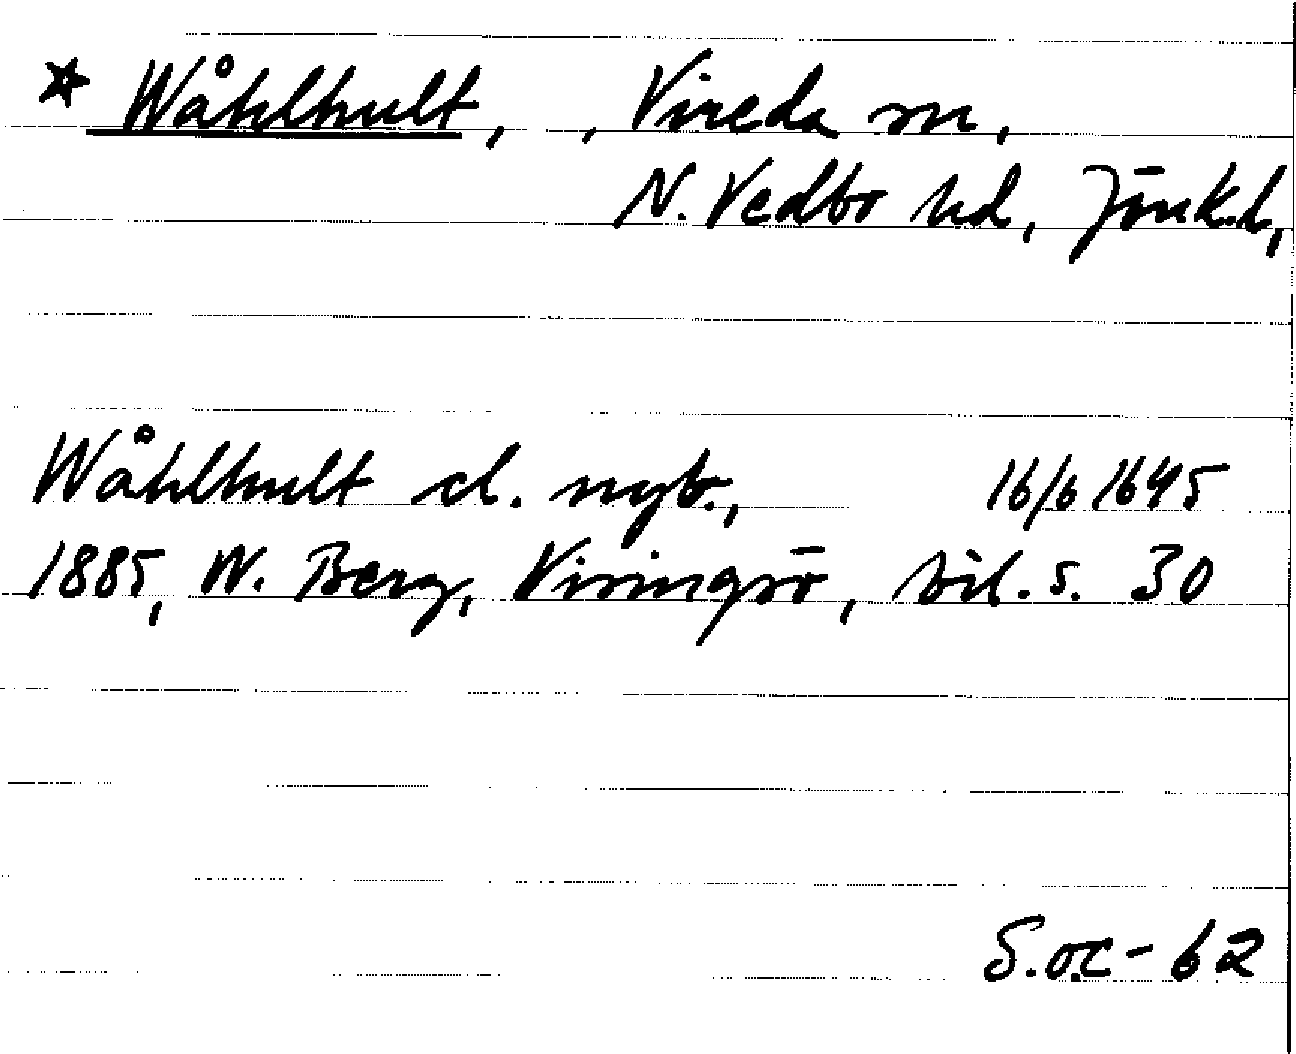 * Wåhlhult, , Vireda sn,
N. Vedbo hd, Jönk.l,
Wåhlhult cl. nyb., 16/6 1645
1885, W. Berg, Visingsö, bil. s. 30
S.O.C-62